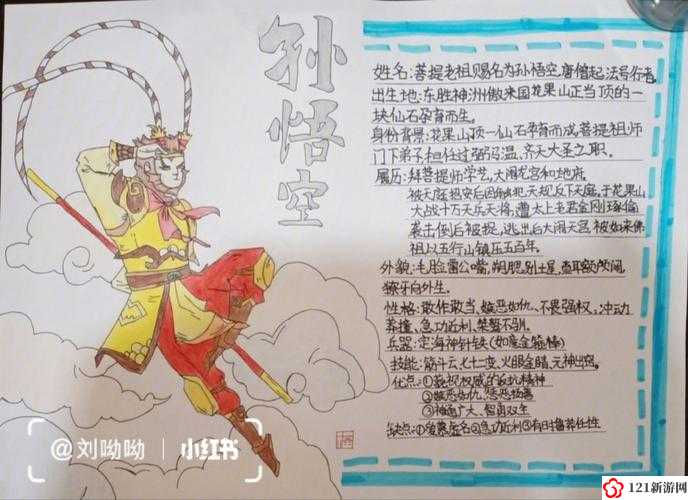 孙悟空
姓名:菩提老祖赐名为孙悟空,唐僧起法号行者
出生地:东胜神洲傲来国花果山正当顶的一
块仙石孕育而生。
身份背景:花果山顶一仙石孕育而成,菩提祖师
门下弟子,担任过弼马温、齐天大圣之职。
履历:拜菩提师学艺,大闹龙宫和地府,
被天庭招安后因触犯天规反下天庭,于花果山
大战十万天兵天将,遭太上老君金刚琢偷
袭击倒后被捉,逃出后大闹天宫,被如来佛
祖以五行山镇压五百年。
外貌:毛脸雷公嘴,朔腮别土星,查耳额颅阔,
獠牙向外生。
性格:敢作敢当、嫉恶如仇、不畏强权、冲动
莽撞、急功近利、桀骜不驯。
兵器:定海神针铁(如意金箍棒)
技能:筋斗云、七十二变、火眼金睛、元神出窍。
优点:①藐视权威富反抗精神
②嫉恶如仇、惩恶扬善
③神通广大、智勇双全
缺点:①爱慕虚名②急功近利③有时鲁莽任性
@刘呦呦 | 小红书
121新游网